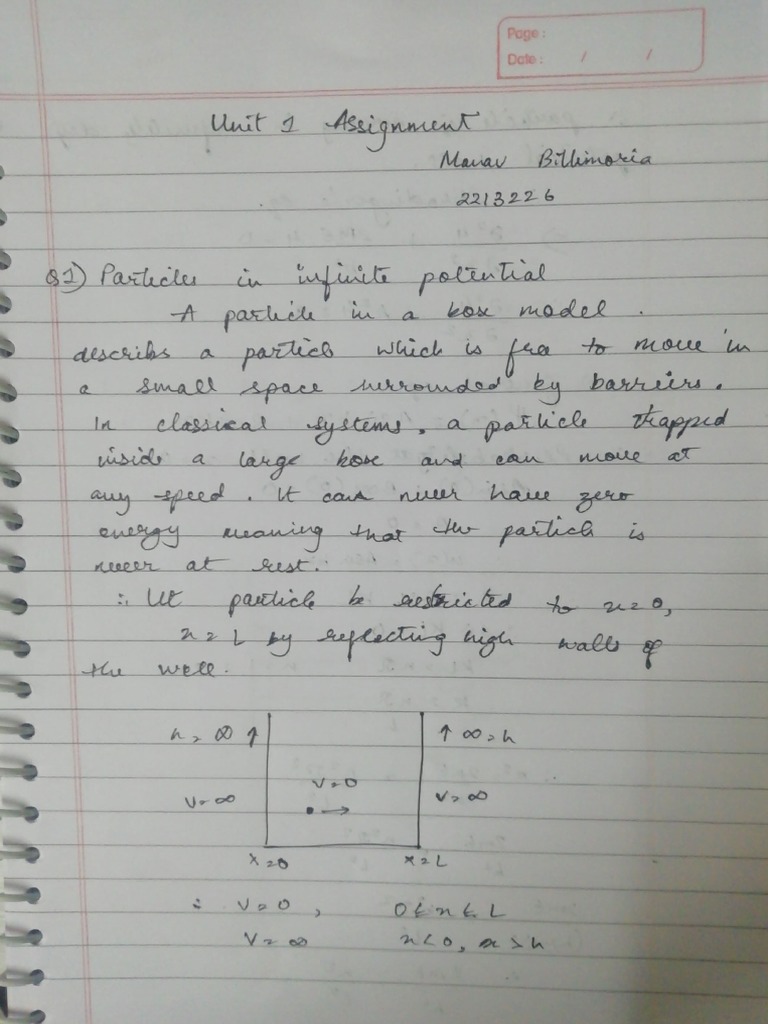 Page :
Date : / /
Unit 1 Assignment
Manav Billimoria
2213226
Q1) Particles in infinite potential
A particle in a box model .
describs a particle which is free to move in
a small space surrounded by barriers.
In classical systems, a particle trapped
inside a large box and can move at
any speed. It can never have zero
energy meaning that the particle is
never at rest.
∴ Let particle be restricted to x=0,
x=L by reflecting high walls of
the well.
h = ∞ ↑ ↑ ∞ = h
V=∞ V=0 V=∞
x=0 x=L
∴ V=0, 0≤x≤L
V=∞ x<0, x>h